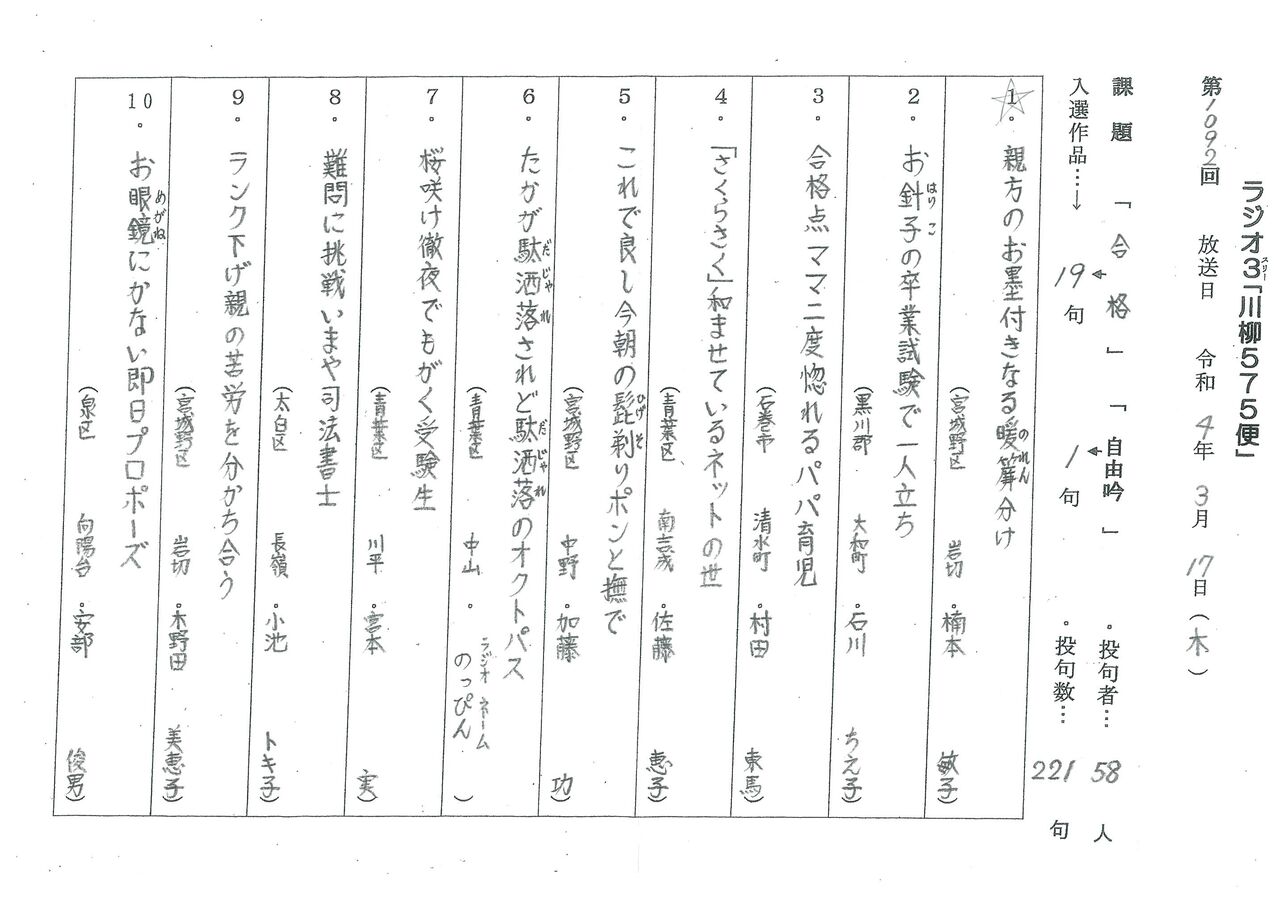 ラジオ3「川柳575便」
スリー
第1092回 放送日 令和4年3月17日(木)
課題「合格」「自由吟」 ・投句者…58人
入選作品…→ 19句 1句 ・投句数…221句
1. 親方のお墨付きなる暖簾分け
のれん
(宮城野区 岩切・楠本 敏子)
2. お針子の卒業試験で一人立ち
はりこ
(黒川郡 大和町・石川 ちえ子)
3. 合格点ママ二度惚れるパパ育児
(石巻市 清水町・村田 東馬)
4. 「さくらさく」和ませているネットの世
(青葉区 南吉成・佐藤 恵子)
5. これで良し今朝の髭剃りポンと撫で
ひげそ
(宮城野区 中野・加藤 功)
6. たかが駄洒落されど駄洒落のオクトパス
だじゃれ だじゃれ
(青葉区 中山・のっぴん)
ラジオネーム
7. 桜咲け徹夜でもがく受験生
(青葉区 川平・宮本 実)
8. 難問に挑戦いまや司法書士
(太白区 長嶺・小池 トキ子)
9. ランク下げ親の苦労を分かち合う
(宮城野区 岩切・木野田 美恵子)
10. お眼鏡にかない即日プロポーズ
めがね
(泉区 向陽台・安部 俊男)